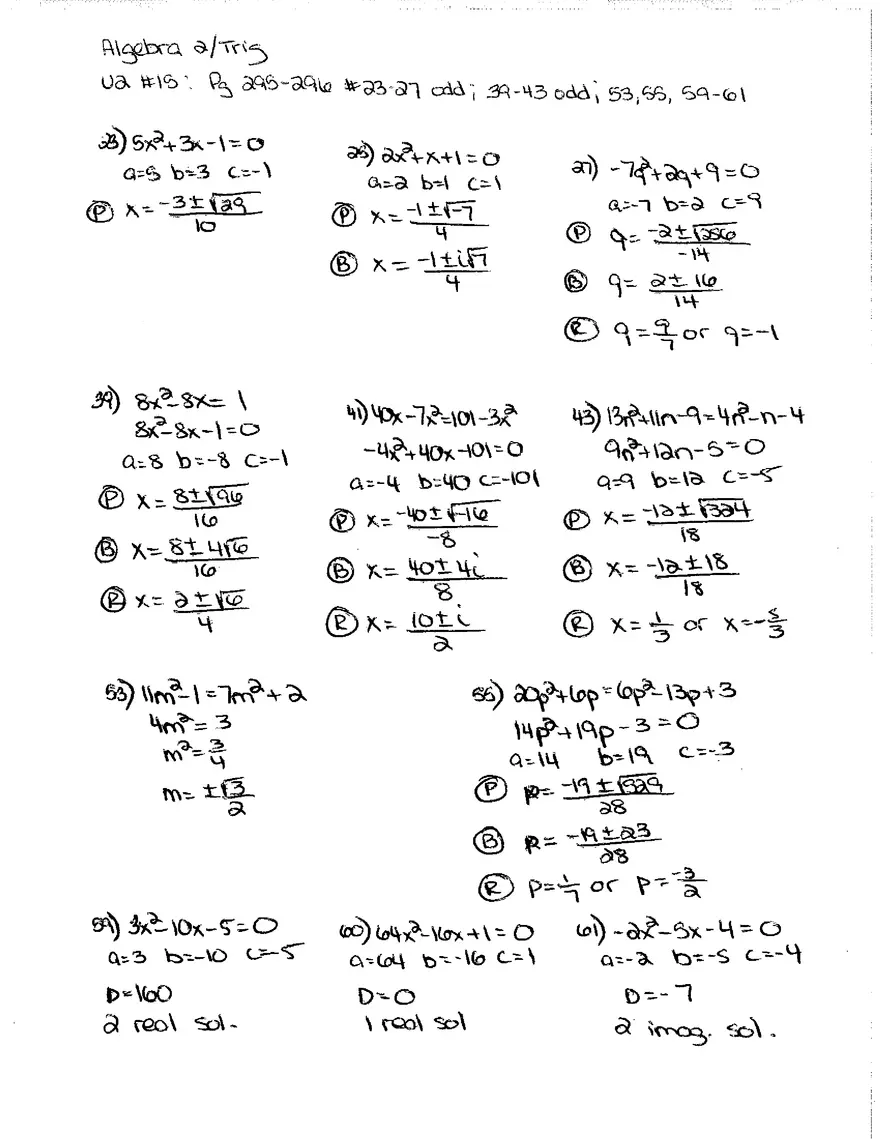 Algebra 2/Trig
U2 #15: Pg 295-296 #23-27 odd; 39-43 odd; 53,55, 59-61
23) 5x²+3x-1=0
a=5 b=3 c=-1
Ⓟ x = (-3±√29)/10
25) 2x²+x+1=0
a=2 b=1 c=1
Ⓟ x = (-1±√-7)/4
Ⓑ x = (-1±i√7)/4
27) -7q²+2q+9=0
a=-7 b=2 c=9
Ⓟ q = (-2±√256)/-14
Ⓑ q = (2±16)/14
Ⓡ q = 9/7 or q=-1
39) 8x²-8x=1
8x²-8x-1=0
a=8 b=-8 c=-1
Ⓟ x = (8±√96)/16
Ⓑ x = (8±4√6)/16
Ⓡ x = (2±√6)/4
41) 40x-7x²=101-3x²
-4x²+40x-101=0
a=-4 b=40 c=-101
Ⓟ x = (-40±√-16)/-8
Ⓑ x = (40±4i)/8
Ⓡ x = (10±i)/2
43) 13n²+11n-9=4n²-n-4
9n²+12n-5=0
a=9 b=12 c=-5
Ⓟ x = (-12±√324)/18
Ⓑ x = (-12±18)/18
Ⓡ x = 1/3 or x=-5/3
53) 11m²-1=7m²+2
4m²=3
m²=3/4
m= ±√3/2
55) 20p²+6p=6p²-13p+3
14p²+19p-3=0
a=14 b=19 c=-3
Ⓟ p = (-19±√529)/28
Ⓑ p = (-19±23)/28
Ⓡ p=1/7 or p=-3/2
59) 3x²-10x-5=0
a=3 b=-10 c=-5
D=160
2 real sol.
60) 64x²-16x+1=0
a=64 b=-16 c=1
D=0
1 real sol
61) -2x²-5x-4=0
a=-2 b=-5 c=-4
D=-7
2 imag. sol.